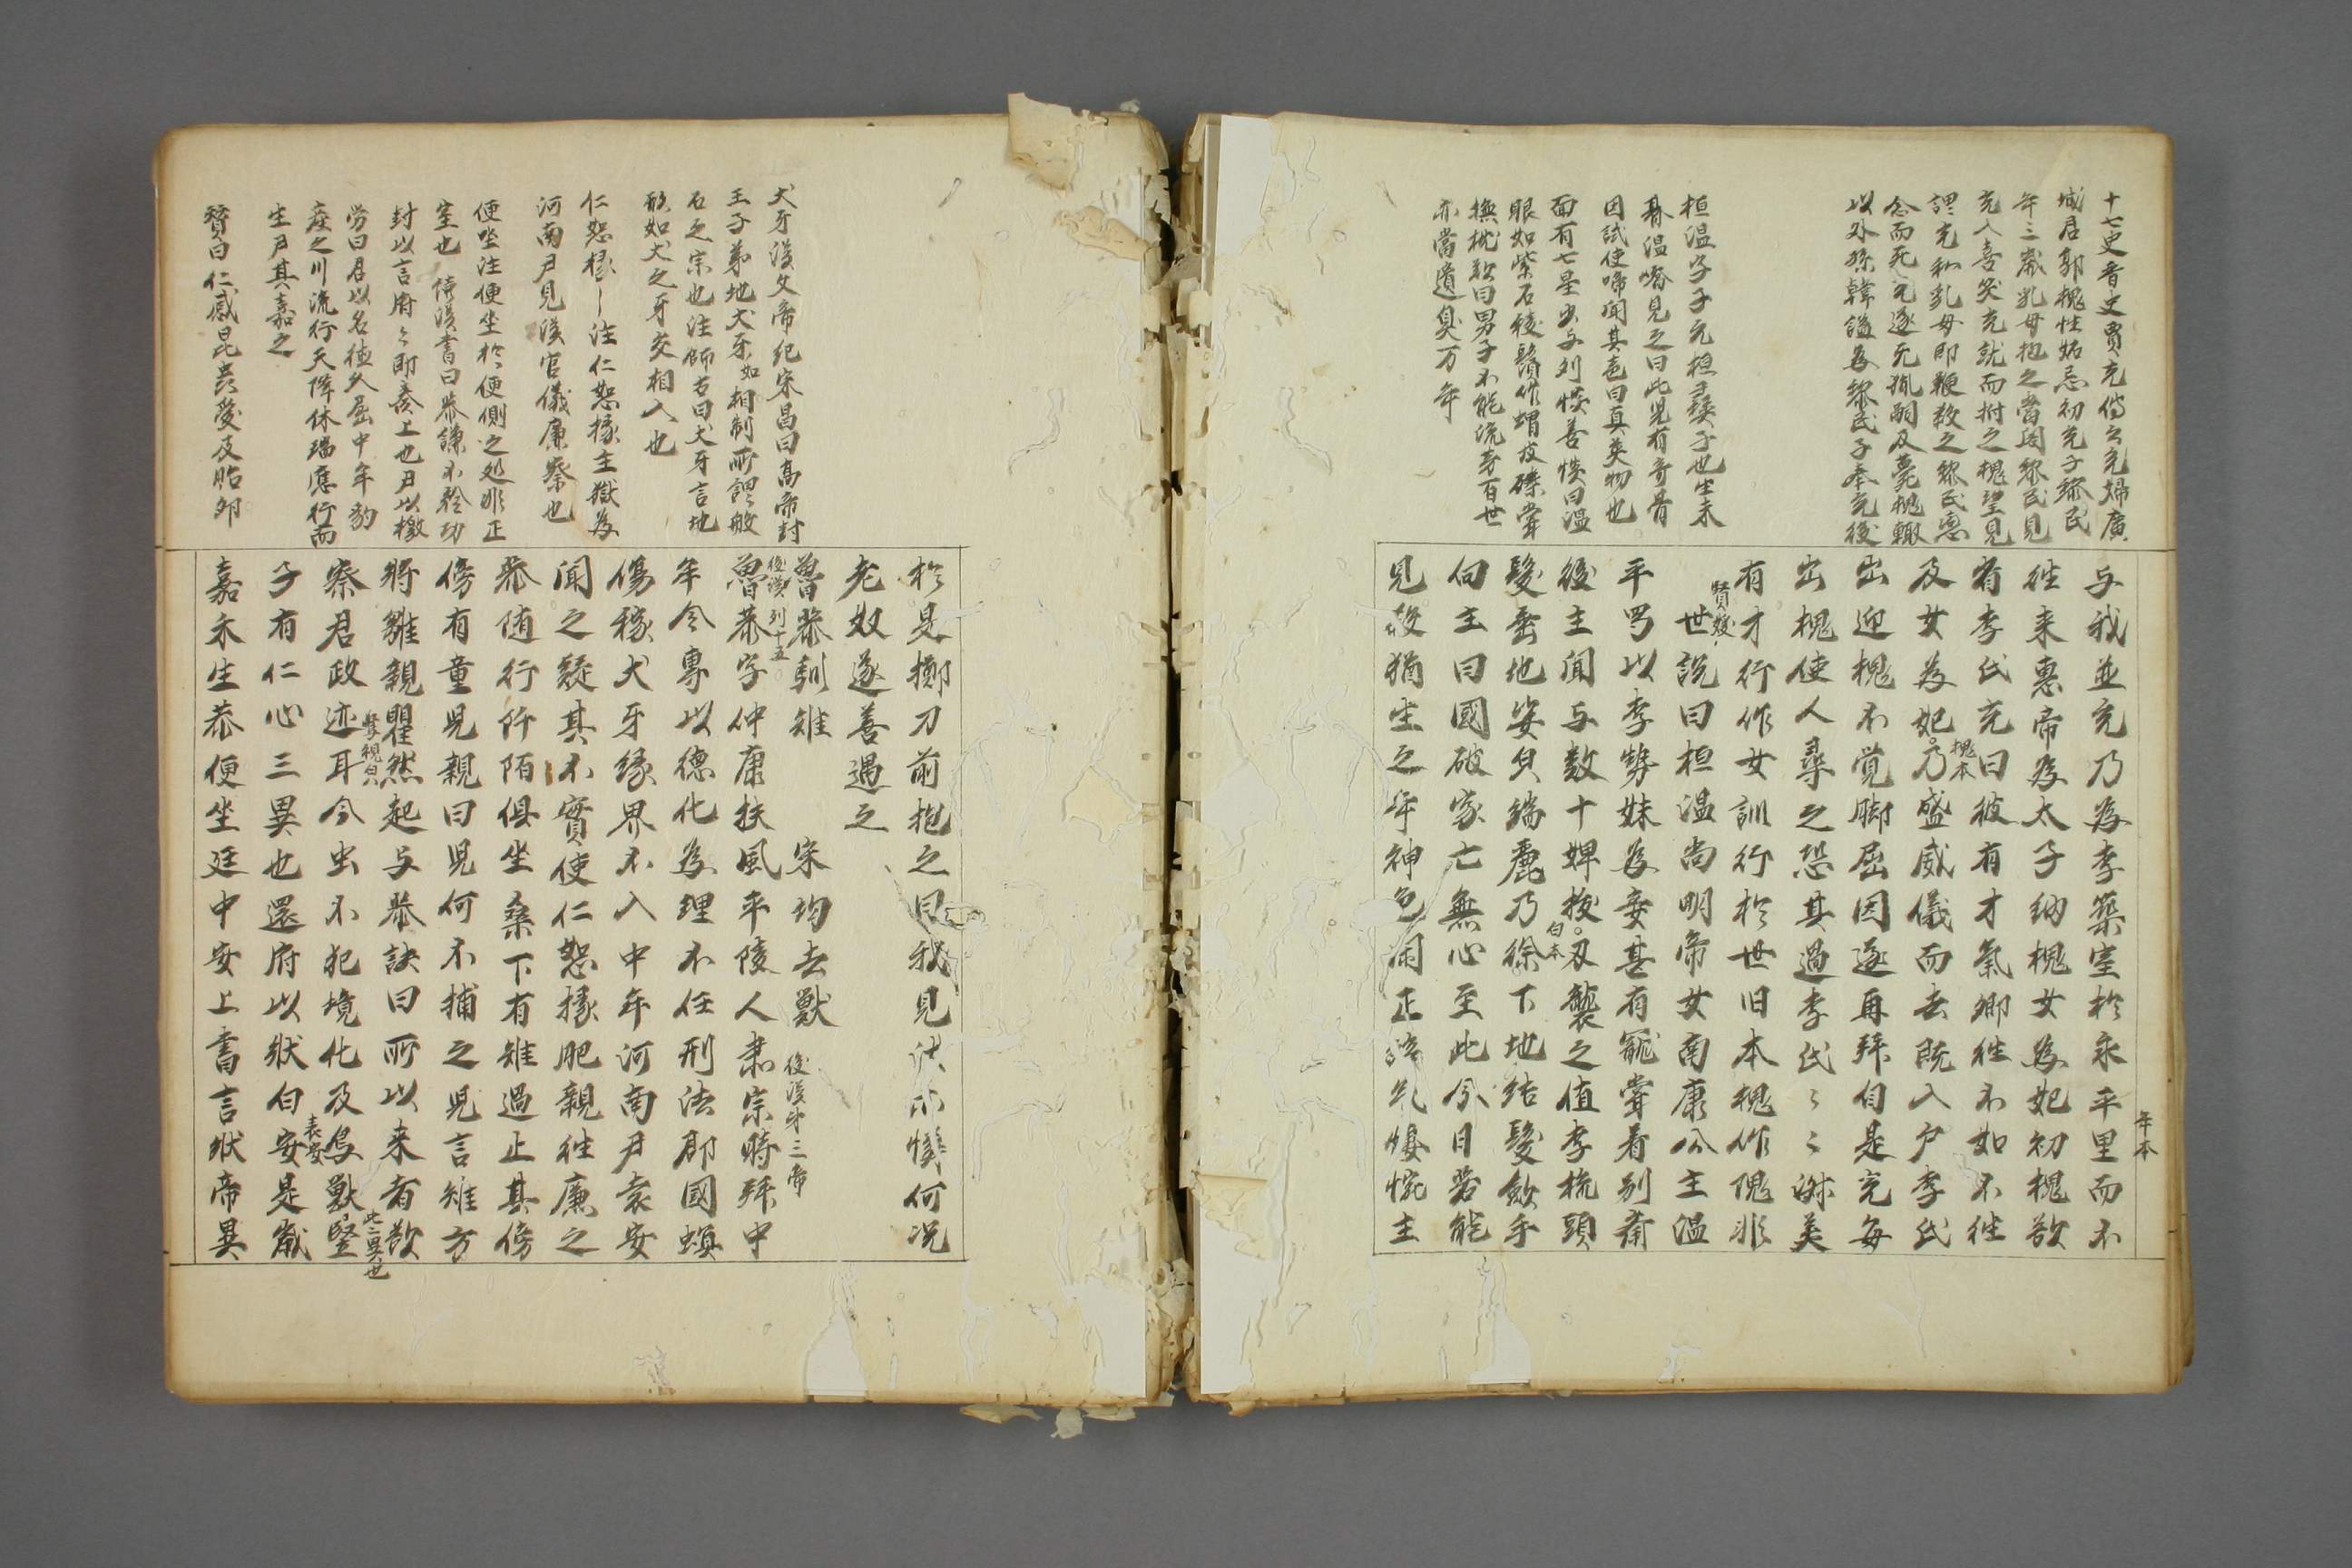 十七史晋史賈充傳云充婦廣
城君郭槐性妬忌初充子黎民
年三歳乳母抱之當閤黎民見
充入喜笑充就而拊之槐望見
謂充私乳母即鞭殺之黎民恋
念而死充遂无胤嗣及薨槐輙
以外孫韓謐為黎民子奉充後
桓温字子元桓彛子也生未
朞温嶠見之曰此児有奇骨
因試使啼聞其声曰真英物也
面有七星少与刘惔善惔曰温
眼如紫石稜鬚作蝟皮磔甞
撫枕歎曰男子不能流芳百世
亦當遺臭万年
与我並充乃為李築室於永平里而不
年本
往来惠帝為太子納槐女為妃初槐欲
省李氏充曰彼有才氣卿往不如不往
槐本
及女為妃乃盛威儀而去既入户李氏
出迎槐不覚脚屈因遂再拜自是充毎
出槐使人尋之恐其過李氏〻〻淑美
有才行作女訓行於世旧本槐作隗非
賢媛
世說曰桓温尚明帝女南康公主温
平蜀以李勢妹為妾甚有寵甞着別斎
後主聞与数十婢抜刃襲之值李梳頭
白本
髮垂地姿皃端麗乃徐下地結髮斂手
向主曰國破家亡無心至此今日若能
見殺猶生之年神色閑正辞气悽惋主
犬牙漢文帝紀宋昌曰高帝封
王子弟地犬牙如相制所謂般
石之宗也注師古曰犬牙言地
形如犬之牙交相入也
仁恕掾｜注仁恕掾主獄為
河南尹見漢官儀廉察也
便坐注便坐於便側之処非正
室也 續漢書曰恭謙不矜功
封以言府〻即奏上也尹以檄
労曰君以名徳久屈中牟豹
産之川流行天降休瑞應行而
生尹其嘉之
賛曰仁感昆虫愛及胎卵
於是擲刀前抱之曰我見汝不憐何况
老奴遂善遇之
魯恭馴雉 宋均去獣
後漢列十五 後漢第三帝
魯恭字仲康扶風平陵人肅宗時拜中
牟令專以德化為理不任刑法郡國螟
傷稼犬牙縁界不入中牟河南尹袁安
聞之疑其不實使仁恕掾肥親往廉之
恭随行阡陌俱坐桑下有雉過止其傍
傍有童児親曰児何不捕之児言雉方
將雛親瞿然起与恭訣曰所以来者欲
驚視皃 此二異也
察君政迹耳今虫不犯境化及鳥獣竪
袁安
子有仁心三異也還府以狀白安是歳
嘉禾生恭便坐廷中安上書言狀帝異